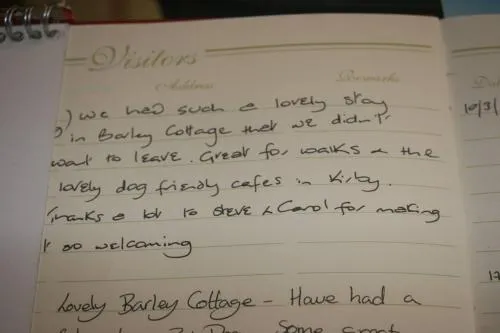 Visitors
Address Remarks
we had such a lovely stay 10/3/
in Barley Cottage that we didn't
want to leave. Great for walks & the
lovely dog friendly cafes in Kirby.
Thanks a lot to Steve & Carol for making
it so welcoming
Lovely Barley Cottage - Have had a
Some great